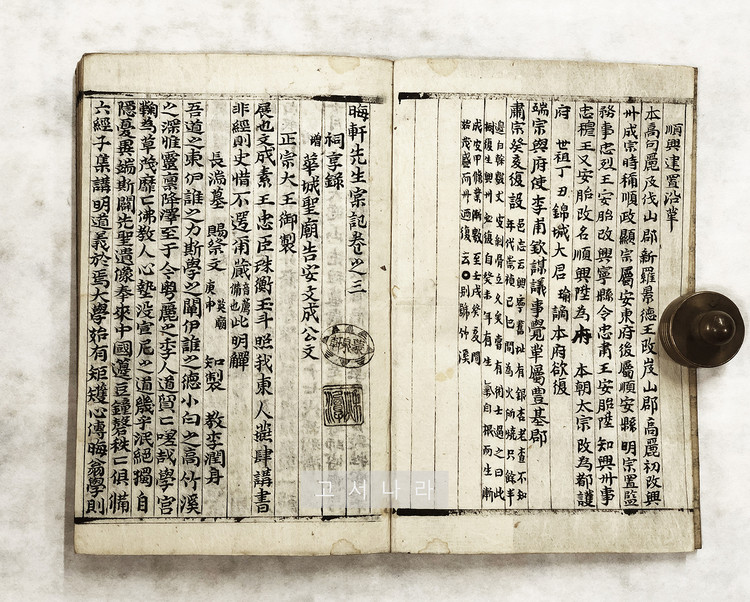 順興建置沿革
本高句麗及伐山郡新羅景德王改岌山郡高麗初改興
州成宗時稱順政顯宗屬安東府後屬順安縣明宗置監
務事忠烈王安胎改興寧縣令忠肅王安胎陞知興州事
忠穆王又安胎改名順興陞為府 本朝太宗改為都護
府 世祖丁丑錦城大君 瑜謫本府欲復
端宗與府使李甫欽謀議事覺革屬豊基郡
肅宗癸亥復設
晦軒先生實記卷之三
祠享錄
增 華城聖廟告安文成公文
正宗大王御製
展也文成素王忠臣珠衡玉斗照我東人叢肆講書
非經則史惜不遝甫 此明觧
長湍墓 賜祭文 知製 教李潤身
吾道之東伊誰之力斯學之闡伊誰之德小白之高竹溪
之深惟靈禀降澤至于今粤麗之季人道貿貿哉學宮
鞠為草茂靡佛教人心墊没宣尼之道幾乎泯絕獨自
隱憂異端斯闢先聖遺像奉來中國籩豆鐘磬秩俱備
六經子集講明道義於焉大學始有矩矱心傳晦翁學則
고서나라